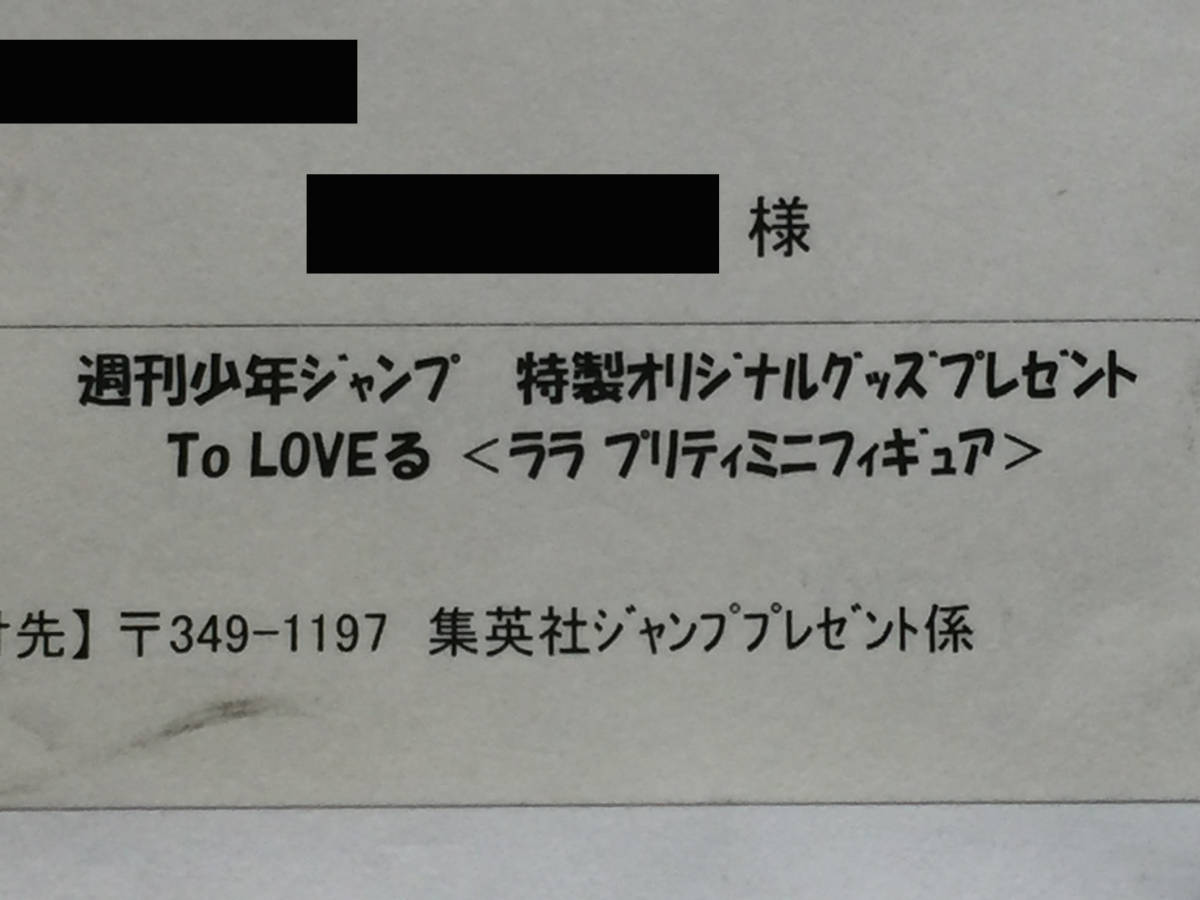 様
週刊少年ジャンプ 特製オリジナルグッズプレゼント
To LOVEる <ララ プリティミニフィギュア>
先】〒349-1197 集英社ジャンププレゼント係